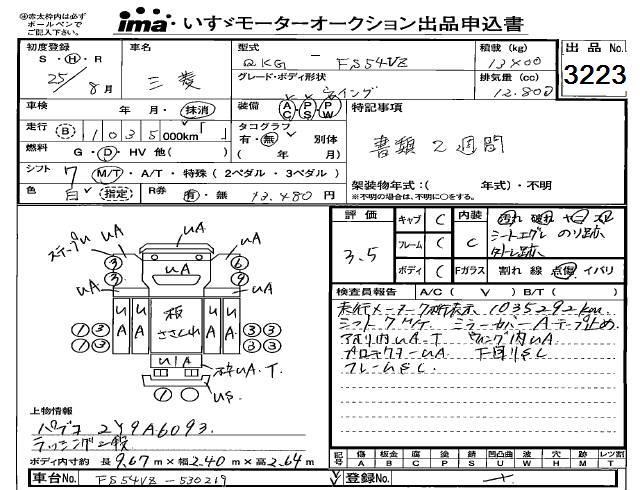 ㊟赤太枠内は必ず
ボールペンで
ご記入下さい。
ima・いすゞモーターオークション出品申込書
初度登録 S・H・R 25/8月
車名 三菱
型式 QKG-FS54VZ
積載(kg) 13800
出品No. 3223
グレード・ボディ形状 ウイング
排気量(cc) 12.800
車検 年・月・抹消
装備 AC PS PW
特記事項
走行 B 1035 000km「 」
タコグラフ 有・無 別体 ( 年 月)
書類2週間
燃料 G・D・HV 他( )
シフト 7 M/T・A/T・特殊(2ペダル・3ペダル)
架装物年式:( 年式)・不明
※不明の場合は、不明に○をする。
色 白 指定
R券 有・無 12.480円
評価 3.5
キャブ C
フレーム C
ボディ C
内装 C
汚れ 破れ ヤコ スレ
シートエグレ のり跡
外し跡
Fガラス 割れ 線 点傷 イバリ
検査員報告 A/C( V ) B/T( )
走行メーター7桁表示 1035292km
シフト7M/T ミラーカバーAテープ止め
アオリ内UA.T ウイング内UA
プロテクターUA 下回りS.C
フレームS.C
ステップU UA
UA
UA
UA
UA
③
⑥
③
⑨
①③
①③
③③
③③
UA
UA
板ささくれ
UA
UA
U1A
枠UA.T
US
①
上物情報
パブコ 2Y9A6093
ラッシング2段
ボディ内寸約 長9.67m×幅2.40m×高2.64m
記号 傷A 板B 腐C 塗P 錆S 凹凸曲U 波W 穴H 跡X レツ割T
車台No. FS54VZ-530219
登録No.